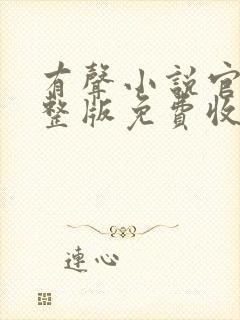 有聲小說官
整版免費收
連心